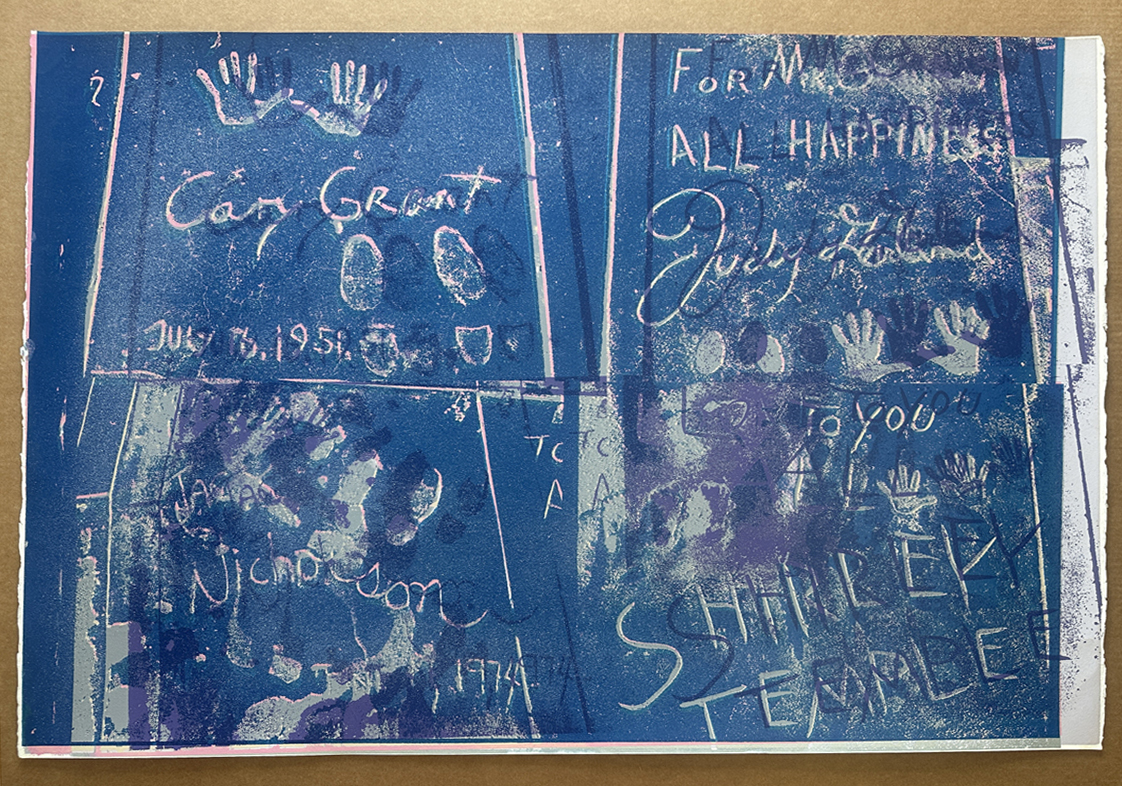 Cary Grant
JULY 16, 1951.
FOR MR. G
ALL HAPPINESS
Judy Garland
Nicholson
1974
TO
A
TO YOU
ALL
SHIRLEY
TEMPLE